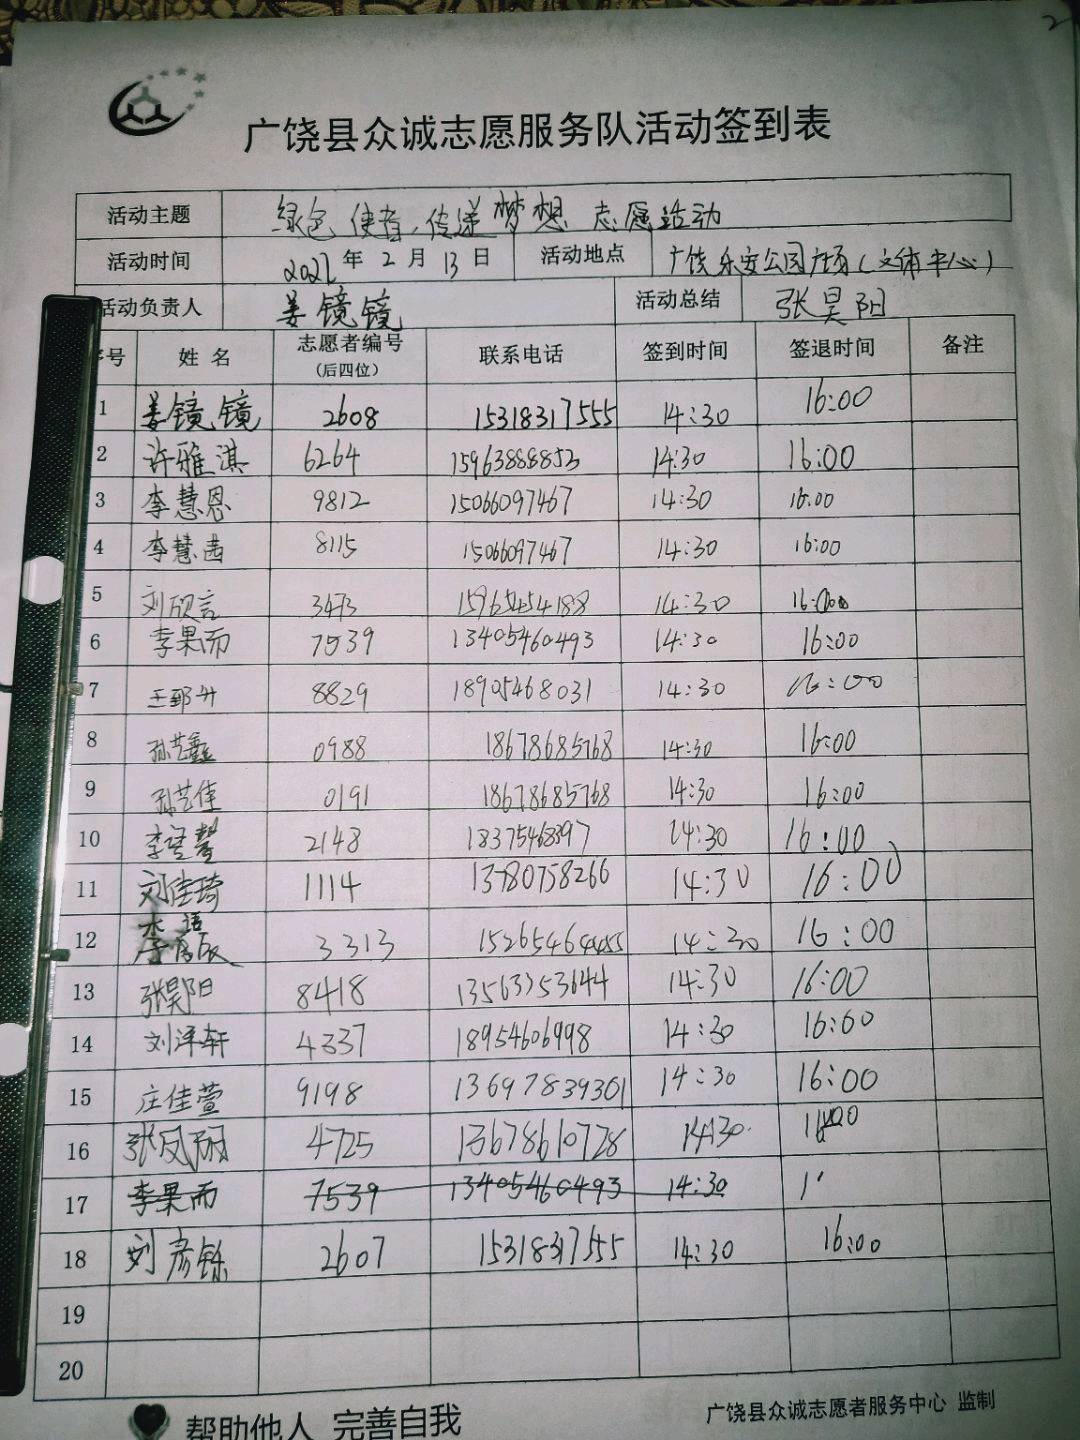 2
广饶县众诚志愿服务队活动签到表
活动主题 绿色使者,传递梦想 志愿活动
活动时间 2022年2月13日 活动地点 广饶乐安公园广场(文体中心)
活动负责人 姜镜镜 活动总结 张昊阳
序号 姓名 志愿者编号(后四位) 联系电话 签到时间 签退时间 备注
1 姜镜镜 2608 15318317555 14:30 16:00
2 许雅淇 6264 15963888853 14:30 16:00
3 李慧恩 9812 15066097467 14:30 16:00
4 李慧茜 8115 15066097467 14:30 16:00
5 刘欣言 3473 15965454188 14:30 16:00
6 李果而 7539 13405460493 14:30 16:00
7 8829 18905468031 14:30 16:00
8 孙艺鑫 0988 18678685768 14:30 16:00
9 孙艺佳 0191 18678685768 14:30 16:00
10 2148 18375468397 14:30 16:00
11 刘佳琦 1114 13780758266 14:30 16:00
12 3313 14:30 16:00
13 张昊阳 8418 13563353644 14:30 16:00
14 刘泽轩 4337 18954606998 14:30 16:60
15 庄佳萱 9198 13697839301 14:30 16:00
16 张凤丽 4725 13678610728 14:30
17 李果而 7539 13405460493 14:30 1'
18 刘彦铄 2607 15318317555 14:30 16:00
19
20
帮助他人 完善自我
广饶县众诚志愿者服务中心 监制